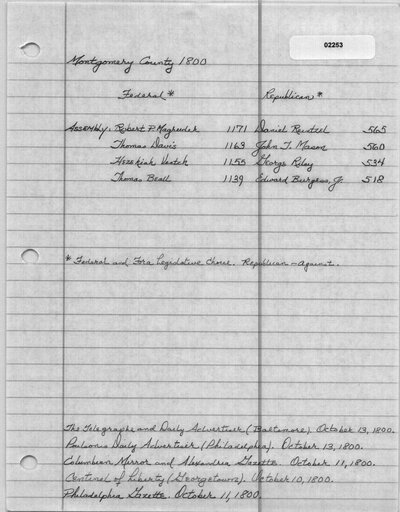 02253
Montgomery County 1800
Federal * Republican *
Assembly: Robert P. Magruder 1171 Daniel Reintzel 565
Thomas Davis 1163 John T. Mason 560
Hezekiah Veatch 1155 George Riley 534
Thomas Beall 1139 Edward Burgess, Jr. 518
* Federal and For a Legislative Choice. Republican - against.
The Telegraphe and Daily Advertiser (Baltimore). October 13, 1800.
Poulson's Daily Advertiser (Philadelphia). October 13, 1800.
Columbian Mirror and Alexandria Gazette. October 11, 1800.
Centinel of Liberty (Georgetown). October 10, 1800.
Philadelphia Gazette. October 11, 1800.